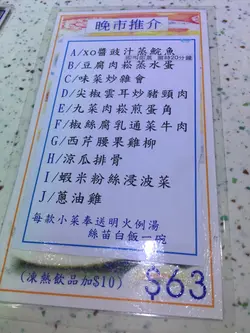 晚市推介
A/xo醬豉汁蒸鯇魚
即叫即蒸 需時20分鐘
B/豆腐肉崧蒸水蛋
C/味菜炒雜會
D/尖椒雲耳炒豬頸肉
E/九菜肉崧煎蛋角
F/椒絲腐乳通菜牛肉
G/西芹腰果雞柳
H/涼瓜排骨
I/蝦米粉絲浸波菜
J/蔥油雞
每款小菜奉送明火例湯
絲苗白飯一碗
(凍熱飲品加$10) $63